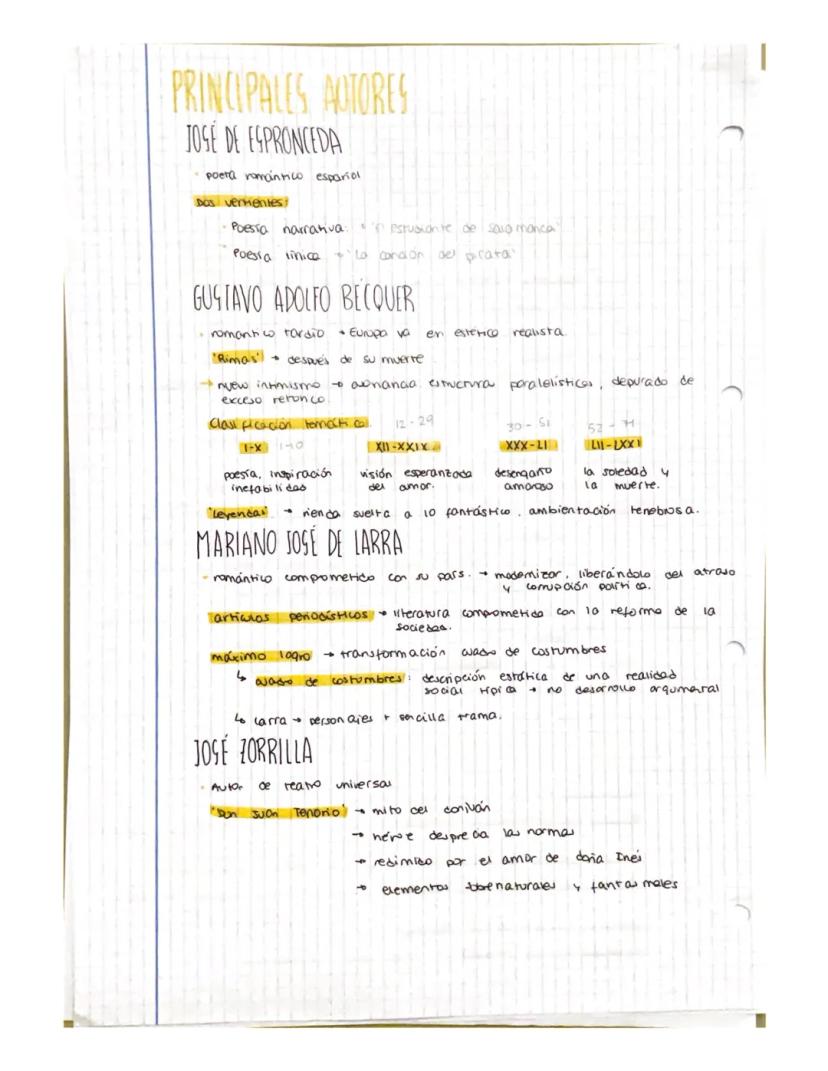 PRINCIPALES AUTORES
JOSÉ DE ESPRONCEDA
· poeta romántico español
Dos vertientes:
· Poesía narrativa: "El estudiante de Salamanca"
Poesía lírica → "La canción del pirata"
GUSTAVO ADOLFO BÉCQUER
· romántico tardío → Europa va en estética realista
"Rimas" → después de su muerte
→ nuevo intimismo → asonancia, estructura paralelísticas, depurado de
exceso retórico.
Clasificación temática: 12-29 30-51 52-71
I-X 1-10 XII-XXIX XXX-LI LII-LXXI
poesía, inspiración visión esperanzada desengaño la soledad y
inefabilidad del amor. amoroso la muerte.
"Leyendas" → rienda suelta a lo fantástico, ambientación tenebrosa.
MARIANO JOSÉ DE LARRA
· romántico comprometido con su país. → modernizar, liberándolo del atraso
y corrupción política.
artículos periodísticos → literatura comprometida con la reforma de la
sociedad.
máximo logro → transformación cuadro de costumbres
↳ cuadro de costumbres: descripción estática de una realidad
social típica → no desarrollo argumental
↳ Larra → personajes + sencilla trama.
JOSÉ ZORRILLA
· Autor de teatro universal
"Don Juan Tenorio" → mito del donjuán
→ héroe desprecia las normas
→ redimido por el amor de doña Inés
→ elementos sobrenaturales y fantasmales